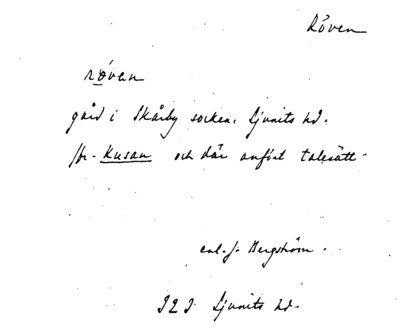 Röven
röven
gård i Skårby socken, Ljunits hd.
jfr Kusan och där anfört talesätt.
enl. f. Bergström.
Ljunits hd.